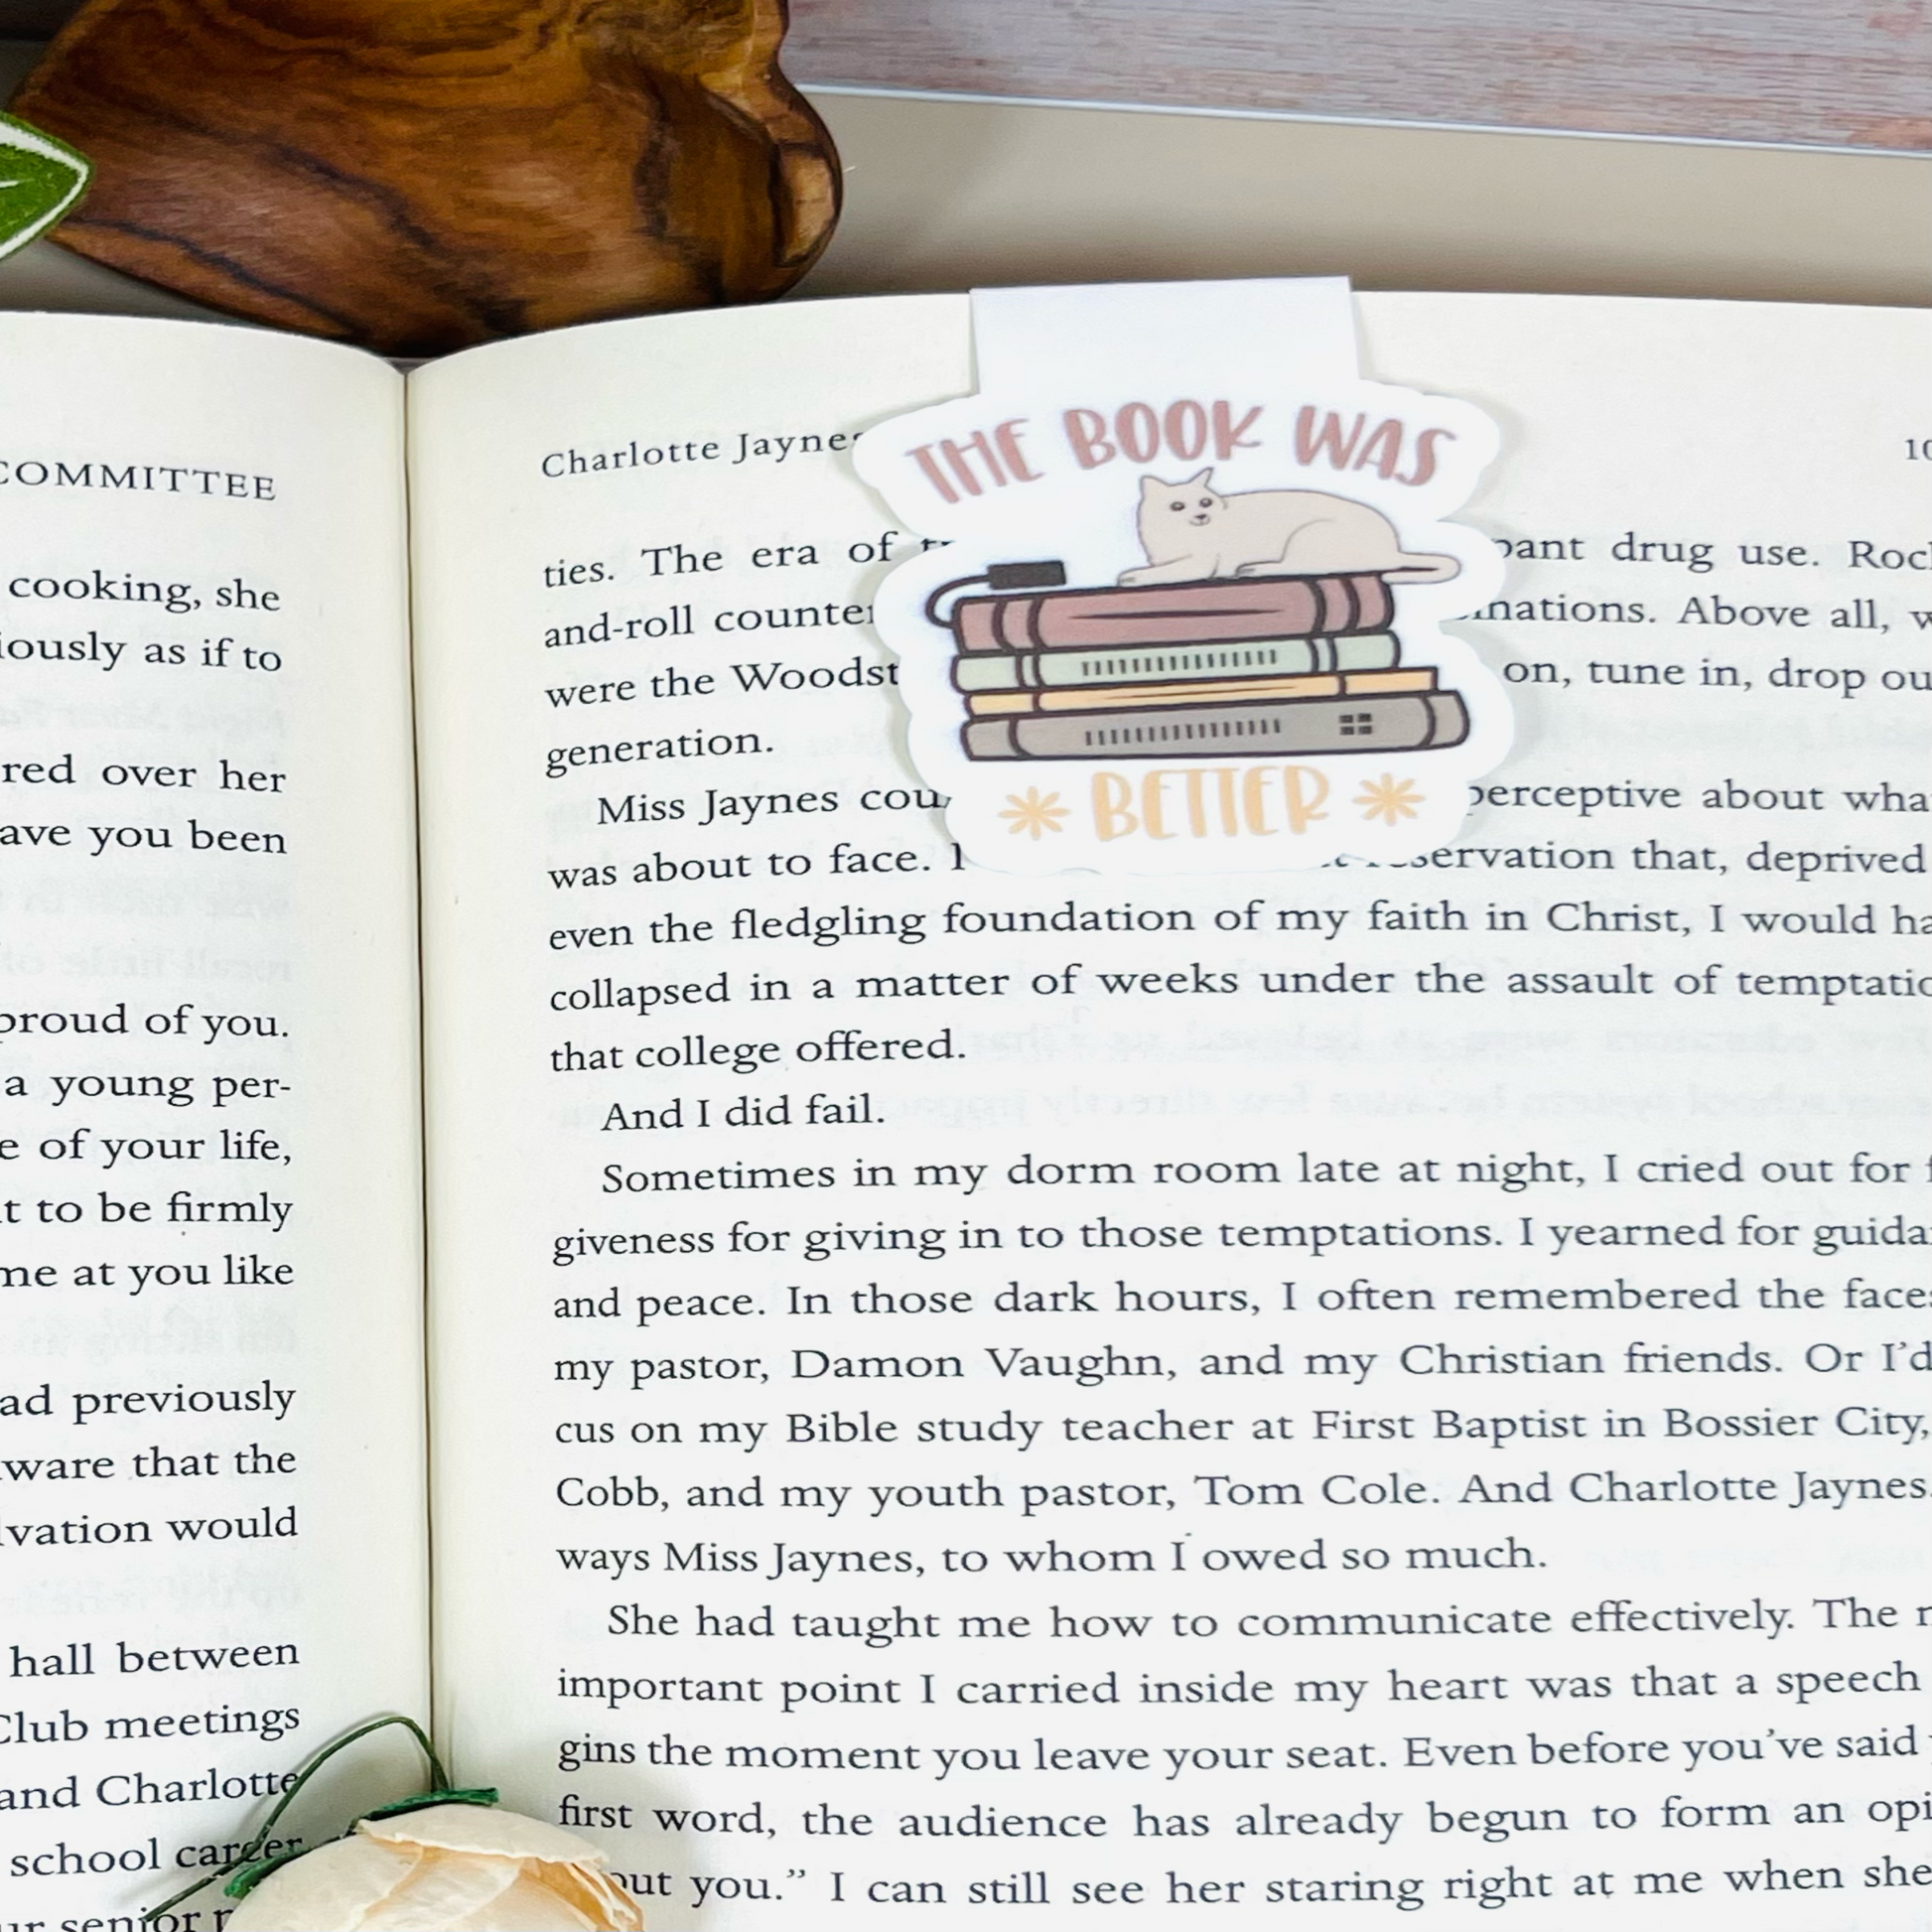 COMMITTEE
cooking, she
as if to
red over her
you been
proud of you.
a young per-
of your life,
to be firmly
at you like
previously
that the
would
hall between
meetings
and Charlotte
school career
senior
Charlotte
THE BOOK WAS
BETTER
ties. The era of drug use. Above all,
and-roll
were the on, tune in, drop
generation.
Miss Jaynes perceptive about
was about to face. that, deprived
even the fledgling foundation of my faith in Christ, I would
collapsed in a matter of weeks under the assault of
that college offered.
And I did fail.
Sometimes in my dorm room late at night, I cried out for
giveness for giving in to those temptations. I yearned for
and peace. In those dark hours, I often remembered the
my pastor, Damon Vaughn, and my Christian friends. Or I'd
cus on my Bible study teacher at First Baptist in Bossier City,
Cobb, and my youth pastor, Tom Cole. And Charlotte Jaynes.
ways Miss Jaynes, to whom I owed so much.
She had taught me how to communicate effectively. The
important point I carried inside my heart was that a speech
gins the moment you leave your seat. Even before you've said
first word, the audience has already begun to form an
you.” I can still see her staring right at me when she